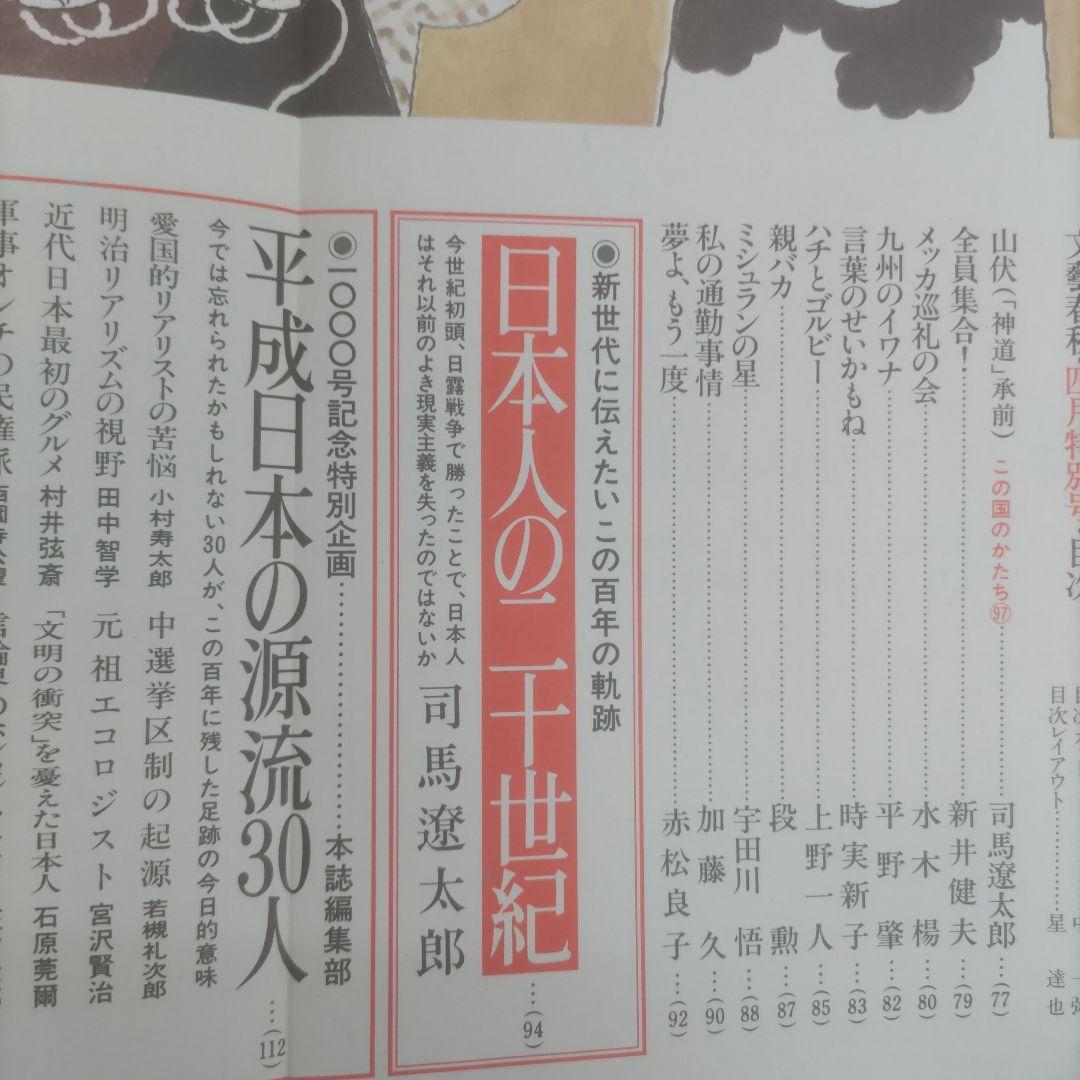 文藝春秋 四月特別号・目次
目次レイアウト……………星 達也
山伏(「神道」承前) この国のかたち 97……………司馬遼太郎…(77)
全員集合!……………新井健夫…(79)
メッカ巡礼の会……………水木 楊…(80)
九州のイワナ……………平野 肇…(82)
言葉のせいかもね……………時実新子…(83)
ハチとゴルビー……………上野一人…(85)
親バカ……………段 勲…(87)
ミシュランの星……………宇田川 悟…(88)
私の通勤事情……………加藤 久…(90)
夢よ、もう一度……………赤松良子…(92)
◉新世代に伝えたいこの百年の軌跡
日本人の二十世紀…(94)
今世紀初頭、日露戦争で勝ったことで、日本人
はそれ以前のよき現実主義を失ったのではないか
司馬遼太郎
◉一〇〇〇号記念特別企画……………本誌編集部
平成日本の源流30人…(112)
今では忘れられたかもしれない30人が、この百年に残した足跡の今日的意味
愛国的リアリストの苦悩 小村寿太郎
中選挙区制の起源 若槻礼次郎
明治リアリズムの視野 田中智学
元祖エコロジスト 宮沢賢治
近代日本最初のグルメ 村井弦斎
「文明の衝突」を憂えた日本人 石原莞爾
軍事オンチの民権派